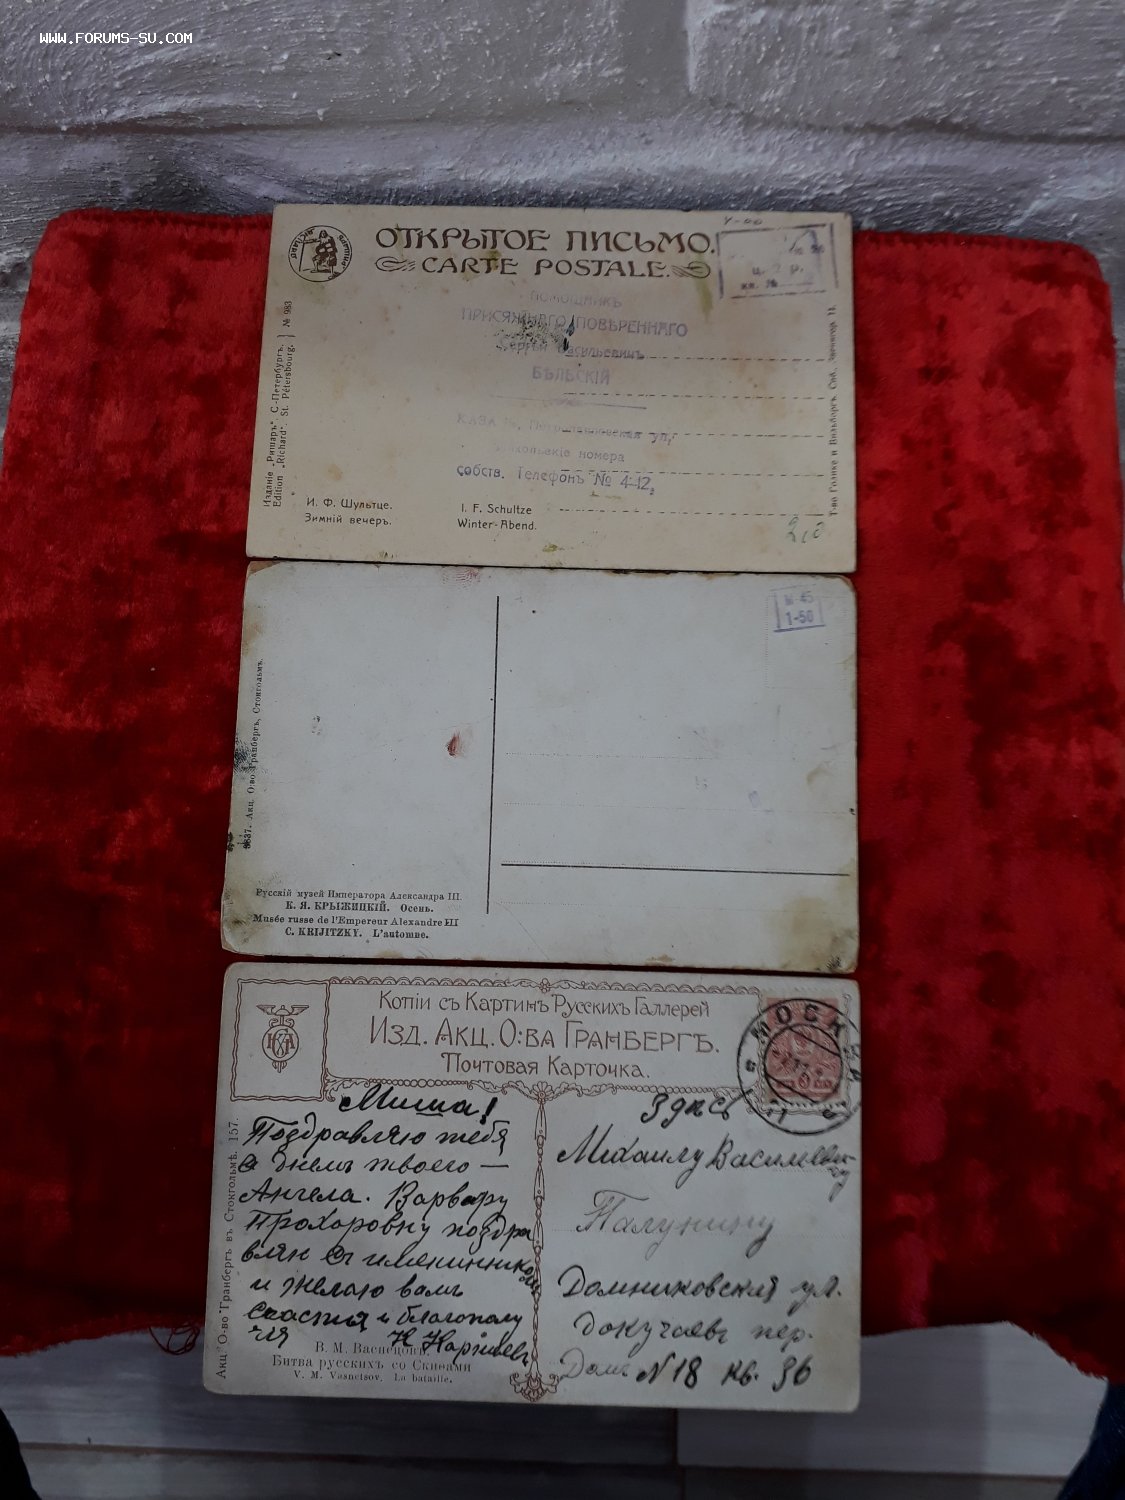 WWW.FORUMS-SU.COM
ОТКРЫТОЕ ПИСЬМО.
CARTE POSTALE.
ц. 2 р.
ПОМОЩНИКЪ
ПРИСЯЖНАГО ПОВѢРЕННАГО
Сергѣй Васильевичъ
БѢЛЬСКІЙ
ул,
номера
собств. Телефонъ № 4-12,
Изданіе „Ришаръ“ С.-Петербургъ.
Edition „Richard“. St. Pétersbourg.
№ 983
И. Ф. Шультце.
Зимній вечеръ.
I. F. Schultze
Winter-Abend.
Т-во Голике и Вильборгъ. Спб.
1-50
Акц. О-во Гранбергъ, Стокгольмъ.
Русскій музей Императора Александра III.
К. Я. КРЫЖИЦКІЙ. Осень.
Musée russe de l'Empereur Alexandre III
C. KRIJITZKY. L'automne.
Копіи съ Картинъ Русскихъ Галлерей
Изд. Акц. О-ва Гранбергъ.
Почтовая Карточка.
МОСКВА
Миша!
Поздравляю тебя
с днемъ твоего —
Ангела. Варвару
Прохоровну поздра
вляю съ именинникомъ
и желаю вамъ
счастья и благополу
чія
Здѣсь
Михаилу Василеви-
чу
Галунину
Домниковская ул.
Докучаевъ пер.
Домъ N 18 кв. 36
Акц. О-во Гранбергъ въ Стокгольмѣ. 157.
В. М. Васнецовъ.
Битва русскихъ со Скиѳами
V. M. Vasnetsov. La bataille.